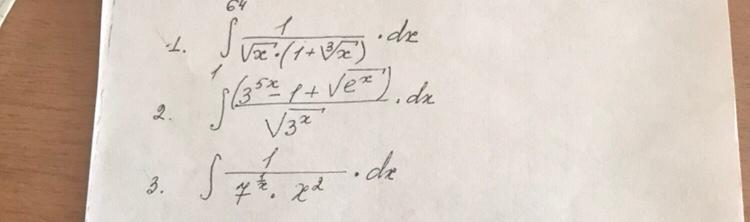 1. ∫₁⁶⁴ 1/(√x · (1+∛x)) · dx
2. ∫ (3^(5x) - 1 + √(e^x))/√(3^x) · dx
3. ∫ 1/(7^(1/x) · x²) · dx